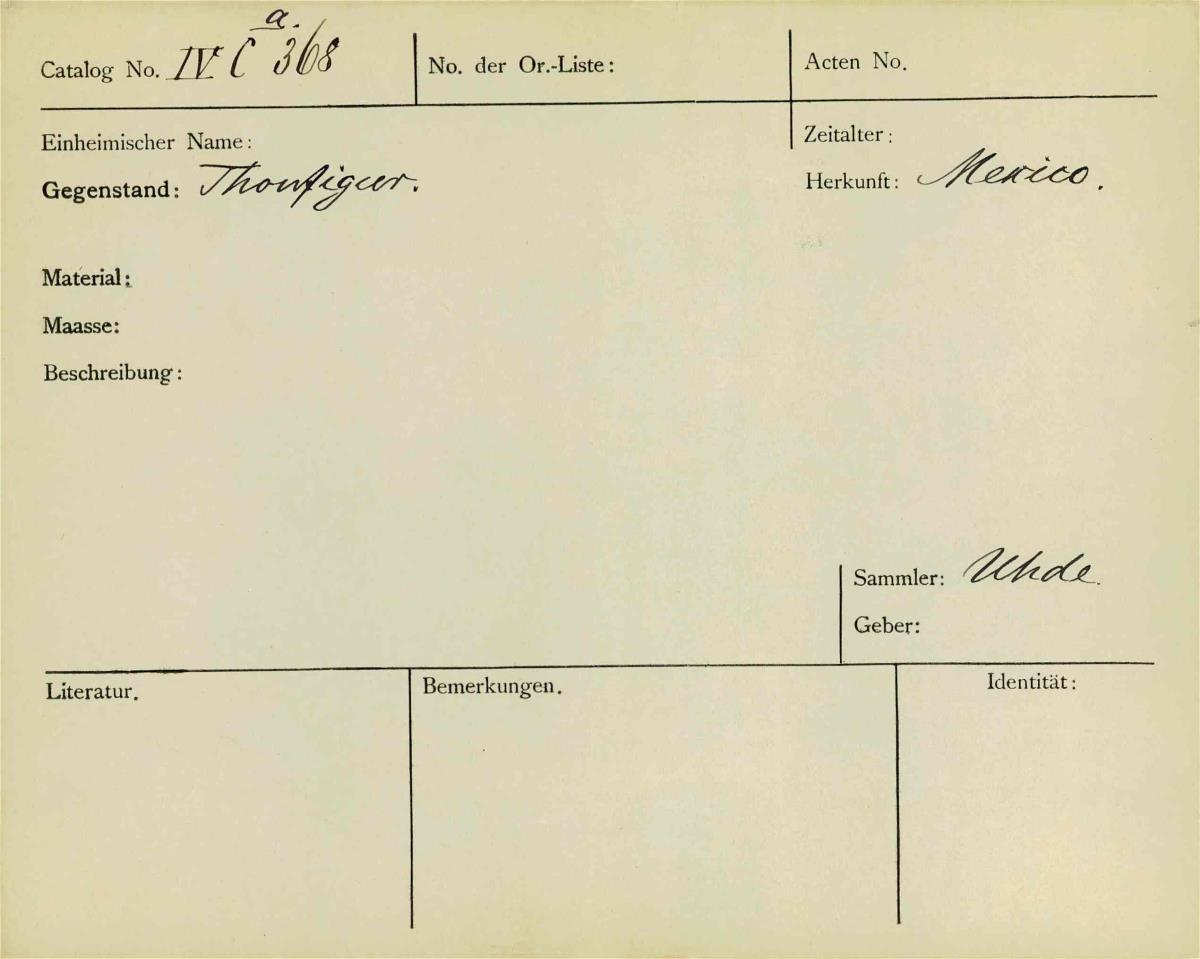 Catalog No. IV C a. 368
No. der Or.-Liste:
Acten No.
Einheimischer Name:
Zeitalter:
Gegenstand: Thonfigur.
Herkunft: Mexico.
Material:
Maasse:
Beschreibung:
Sammler: Uhde.
Geber:
Literatur.
Bemerkungen.
Identität: